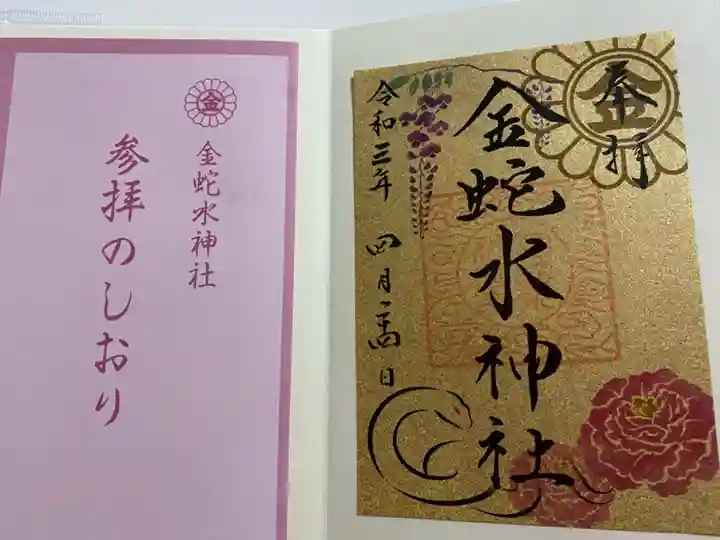 金
金蛇水神社
参拝のしおり
金
奉拝
金蛇水神社
令和三年 四月二四日